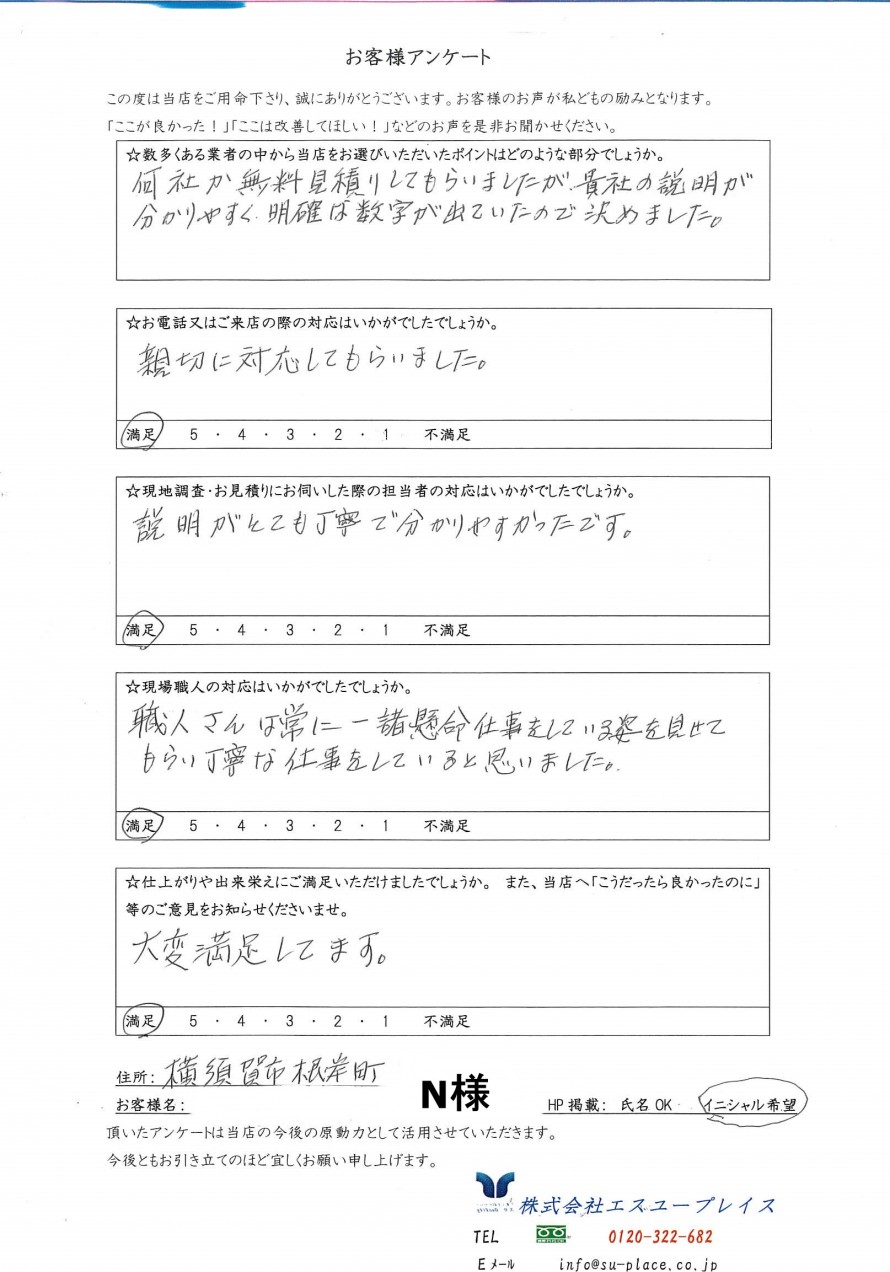 お客様アンケート
この度は当店をご用命下さり、誠にありがとうございます。お客様のお声が私どもの励みとなります。
「ここが良かった！」「ここは改善してほしい！」などのお声を是非お聞かせください。
☆数多くある業者の中から当店をお選びいただいたポイントはどのような部分でしょうか。
何社か無料見積りしてもらいましたが、貴社の説明が
分かりやすく、明確な数字が出ていたので決めました。
☆お電話又はご来店の際の対応はいかがでしたでしょうか。
親切に対応してもらいました。
満足 5 ・ 4 ・ 3 ・ 2 ・ 1 不満足
☆現地調査・お見積りにお伺いした際の担当者の対応はいかがでしたでしょうか。
説明がとても丁寧で分かりやすかったです。
満足 5 ・ 4 ・ 3 ・ 2 ・ 1 不満足
☆現場職人の対応はいかがでしたでしょうか。
職人さんは常に一諸懸命仕事をしている姿を見せて
もらい丁寧な仕事をしていると思いました。
満足 5 ・ 4 ・ 3 ・ 2 ・ 1 不満足
☆仕上がりや出来栄えにご満足いただけましたでしょうか。 また、当店へ「こうだったら良かったのに」
等のご意見をお知らせくださいませ。
大変満足してます。
満足 5 ・ 4 ・ 3 ・ 2 ・ 1 不満足
住所: 横須賀市根岸町
お客様名: N様 HP掲載: 氏名OK イニシャル希望
頂いたアンケートは当店の今後の原動力として活用させていただきます。
今後ともお引き立てのほど宜しくお願い申し上げます。
株式会社エスユープレイス
TEL 0120-322-682
Eメール info@su-place.co.jp